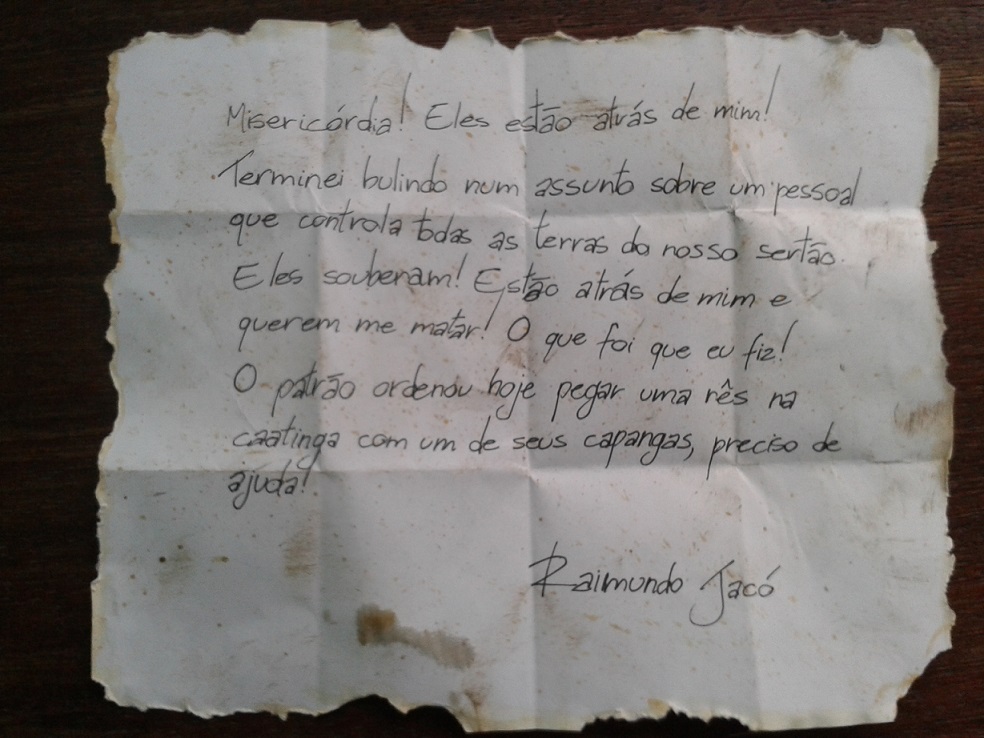 Misericórdia! Eles estão atrás de mim!
Terminei bulindo num assunto sobre um pessoal
que controla todas as terras do nosso sertão.
Eles souberam! Estão atrás de mim e
querem me matar! O que foi que eu fiz!
O patrão ordenou hoje pegar uma rês na
caatinga com um de seus capangas, preciso de
ajuda!
Raimundo Jacó